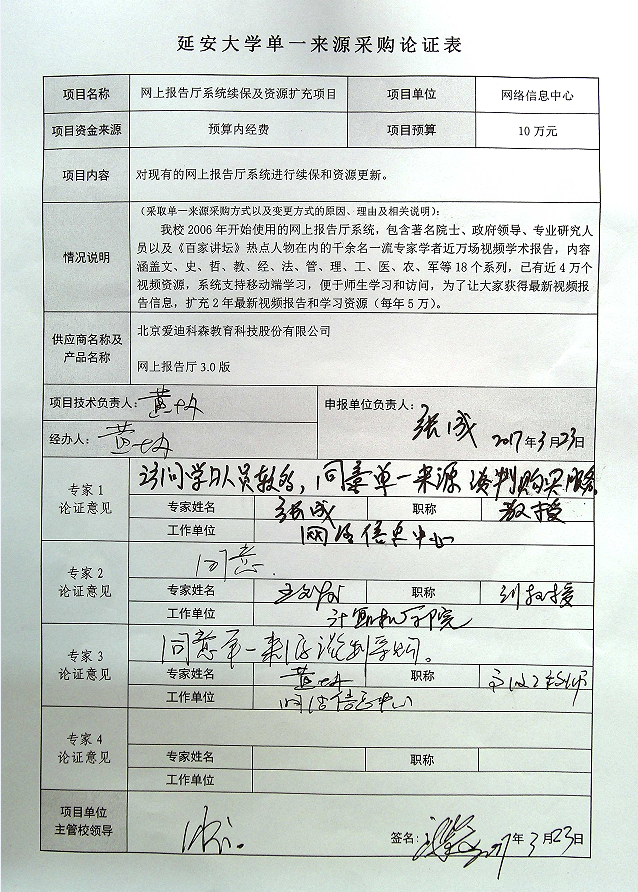 延安大学单一来源采购论证表
项目名称 网上报告厅系统续保及资源扩充项目 项目单位 网络信息中心
项目资金来源 预算内经费 项目预算 10 万元
项目内容 对现有的网上报告厅系统进行续保和资源更新。
(采取单一来源采购方式以及变更方式的原因、理由及相关说明):
我校 2006 年开始使用的网上报告厅系统，包含著名院士、政府领导、专业研究人
员以及《百家讲坛》热点人物在内的千余名一流专家学者近万场视频学术报告，内容
情况说明 涵盖文、史、哲、教、经、法、管、理、工、医、农、军等 18 个系列，已有近 4 万个
视频资源，系统支持移动端学习，便于师生学习和访问，为了让大家获得最新视频报
告信息，扩充 2 年最新视频报告和学习资源（每年 5 万）。
供应商名称及产品名称 北京爱迪科森教育科技股份有限公司
网上报告厅 3.0 版
项目技术负责人： 申报单位负责人：
张成 2017 年 3 月 23 日
经办人：
专家 1
论证意见
访问学习人员较多，同意单一来源谈判购买服务。
专家姓名 张成 职称 教授
工作单位 网络信息中心
专家 2
论证意见
同意.
专家姓名 职称 副教授
工作单位 计算机学院
专家 3
论证意见
同意单一来源谈判采购。
专家姓名 职称 高级工程师
工作单位 网络信息中心
专家 4
论证意见
专家姓名 职称
工作单位
项目单位
主管校领导
签名： 2017 年 3 月 23 日